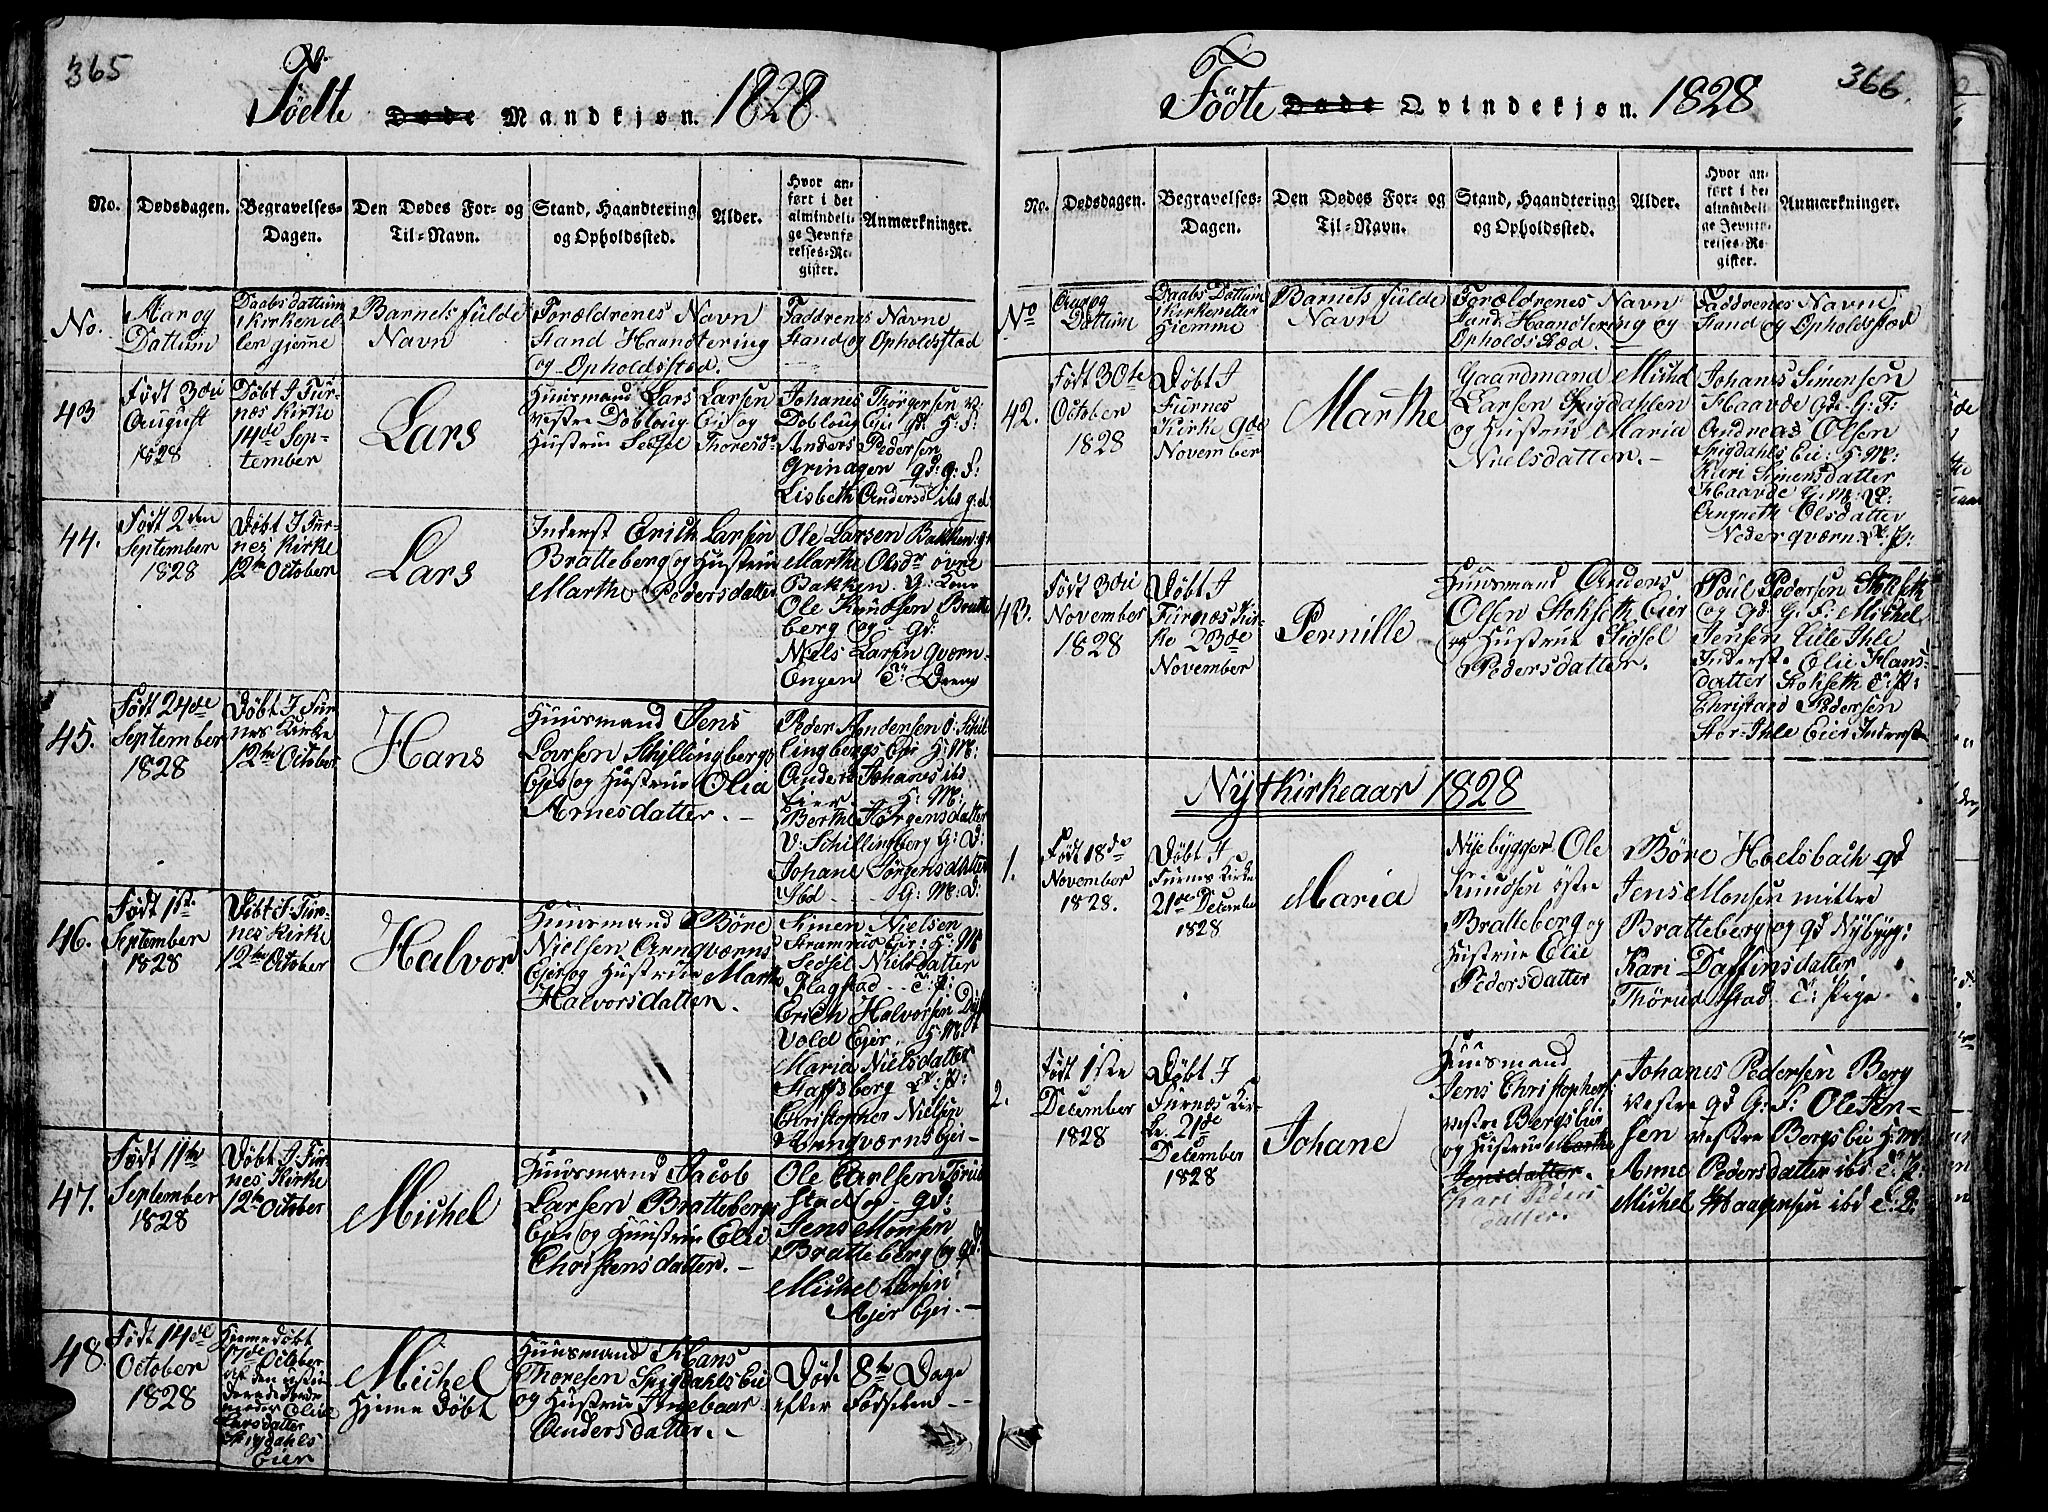 365
Fødte Døde Mandkjøn. 1828
No.
Dødsdagen.
Begravelses-
Dagen.
Den Dødes For- og
Til-Navn.
Stand, Haandtering
og Opholdssted.
Alder.
Hvor an-
ført i det
almindeli-
ge Jevnfø-
relses-Re-
gister.
Anmærkninger.
No.
Aar og
Dattum
Daabsdattum
i kirken el-
ler hjemme
Barnets fulde
Navn
Forældrenes Navn
Stand Haandtering
og Opholdssted.
Faddrenes Navne
Stand og Opholdsstæd
43
Født 3die
August
1828
Døbt I Fur-
nes Kirke
14de Sep-
tember
Lars
Huusmand Lars Larsen
vestre Dobloug Eid og
Hustrue Sedsel Thoresd:
Johanes Thørgersen v:
Dobloug Eie gd. G: F:
Anders Pedersen
Grinagen gd: G: F:
Lisbeth Andersd ibd g:d
44.
Født 2den
September
1828
Døbt I Fur-
nes Kirke
12te October
Lars
Inderst Erich Larsen
Bratteberg og Hustrue
Marthe Pedersdatter
Ole Larsen Bakken g:
Marthe Olsdr øvre
Bakken G: Kone
Ole Knudsen Bratte
berg og gd:
Niels Larsen Qværn-
Engen T: Dreng
45.
Født 24de
September
1828
Døbt I Fur-
nes Kirke
12te October
Hans
Huusmand Jens
Larsen Schillingbergs
Eje og Hustrue Olia
Arnesdatter. -
Peder Andersen Ø: Schil
lingbergs Eje H: M:
Anders Johanes ibd
Eier H: M:
Berthe Jørgensdatter
V: Schillingberg G: D:
Johane Jørgensdatter
Ibd G: M: D:
46.
Født 1ste
September
1828
Døbt I Fur-
nes Kirke
12te October
Halvor
Huusmand Børe
Nielsen Arnqværns
Eje og Hustrue Marthe
Halvorsdatter.
Simen Nielsen
Framreis Eje: H: M
Sedsel Nielsdatter
Flagstad T: P:
Erich Halvorsen
Vold Ejer. H: M:
Maria Nielsdatter
Staffsberg T: P:
Christopher Nielsen
Arnqværns Eje -
47.
Født 11te
September
1828
Døbt I Fur-
nes Kirke
12te October
Michel
Huusmand Jacob
Larsen Brattebergs
Eje og Huustrue Elie
Christensdatter. -
Ole Carlsen Thorud
stad og gd:
Jens Monsen
Bratteberg og gd:
Michel Larsen
Ajer Eje. -
48
Født 14de
October
1828
Hjemedøbt
17de October
af den
Larsdatter
Spigdahls
Eier
Michel
Hjeme Døbt
Huusmand Hans
Thoresen Spigdahls Eie
og Hustrue Ingebaar
Andersdatter. -
Døde 8te Dage
efter Fødselen -
366.
Fødte Døde Qvindekjøn. 1828
No.
Dødsdagen.
Begravelses-
Dagen.
Den Dødes For- og
Til-Navn.
Stand, Haandtering
og Opholdssted.
Alder.
Hvor an-
ført i det
almindeli-
ge Jevnfø-
relses-Re-
gister.
Anmærkninger.
No
Aar og
Dattum
Daabs Dattum
i kirken eller
hjemme
Barnets fulde
Navn
Forældrenes Navn
Stand Haandtering og
Opholds Stæd.
Faddrenes Navne
Stand og Opholdsstæd
42.
Født 30te
October
1828
Døbt I
Furnes
Kirke 9de
November
Marthe
Gaardmand Michel
Larsen Spigdahlen
og Hustrue Maria
Nielsdatter. -
Johans Simensen
Haavde gd: G: F:
Andreas Olsen
Spigdahls Eie: H: M:
Kari Simensdatter
Haavde G: M: D:
Angneth Olsdatter
Neder qværn T: P:
43.
Født 3die
November
1828
Døbt I
Furnæs Kir-
ke 23de
November
Pernille
Huusmand Anders
Olsen Stohseth Eier
og Hustrue Sidsel
Pedersdatter.
Poul Pedersen Stohseth
og gd: G: F: Michel
Jensen Lille Ihle
Inderst Elie Hans-
datter Stohseth T: P:
Christand Pedersen
Stor-Ihle Eier Inderst
Nÿtkirkeaar 1828
1.
Født 18de
November
1828.
Døbt I
Furnes Kirke
21de December
1828
Maria
Nÿebygger Ole
Knudsen østre
Bratteberg og
Hustrue Elie
Pedersdatter
Børe Hoelsbach gd
Jens Monsen mittre
Bratteberg og gd Nÿbyg:
Kari Daffinsdatter
Thørudstad T: Pige
2.
Født 1ste
December
1828
Døbt I
Furnæs Kir-
ke 21de
December
1828
Johane
Huusmand
Jens Christophers
vestre Bergs Eie
og Hustrue Marthe
Jensdatter.
Kari
datter.
Johanes Pedersen Berg
vestre gd G: F: Ole Jen-
sen vestre Bergs Eie H: M:
Anne Pedersdatter ibd T: P:
Michel Haagensen ibd T: D: